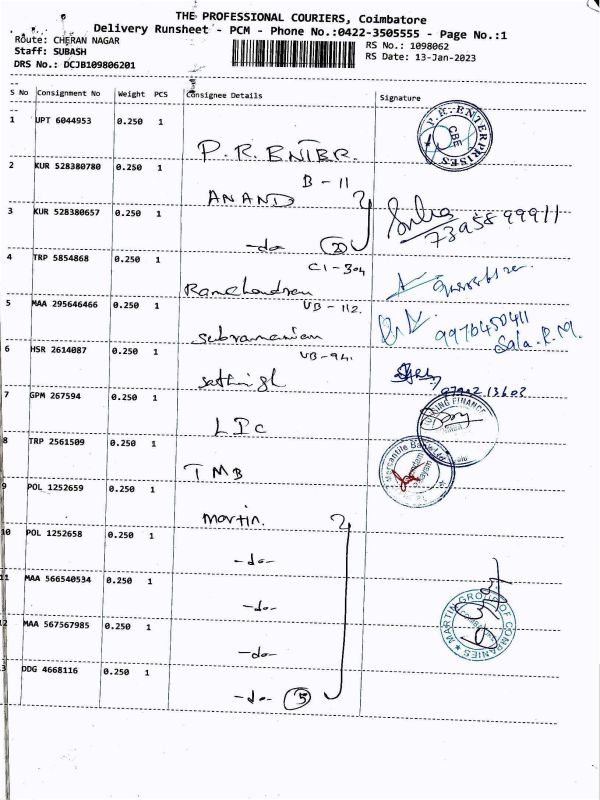 THE PROFESSIONAL COURIERS, Coimbatore
Delivery Runsheet - PCM - Phone No.:0422-3505555 - Page No.:1
Route: CHERAN NAGAR
RS No.: 1098062
Staff: SUBASH
RS Date: 13-Jan-2023
DRS No.: DCJB109806201
S No Consignment No Weight PCS Consignee Details Signature
1 UPT 6044953 0.250 1
P.R. ENTER.
P.R. ENTERPRISES
CBE
2 KUR 528380780 0.250 1
B-11
ANAND
3 KUR 528380657 0.250 1
7395899911
-do- 20
4 TRP 5854868 0.250 1
C1-304
Ramchandran
5 MAA 295646466 0.250 1
UB-112.
Subramanian
9976450411
Sala.R.M.
6 HSR 2614087 0.250 1
UB-94.
7 GPM 267594 0.250 1
LIC
HOUSING FINANCE
8 TRP 2561509 0.250 1
TMB
Mercantile Bank Ltd
9 POL 1252659 0.250 1
martin.
10 POL 1252658 0.250 1
-do-
11 MAA 566540534 0.250 1
-do-
MARTIN GROUP OF COMPANIES
12 MAA 567567985 0.250 1
-do-
13 DDG 4668116 0.250 1
-do- 5